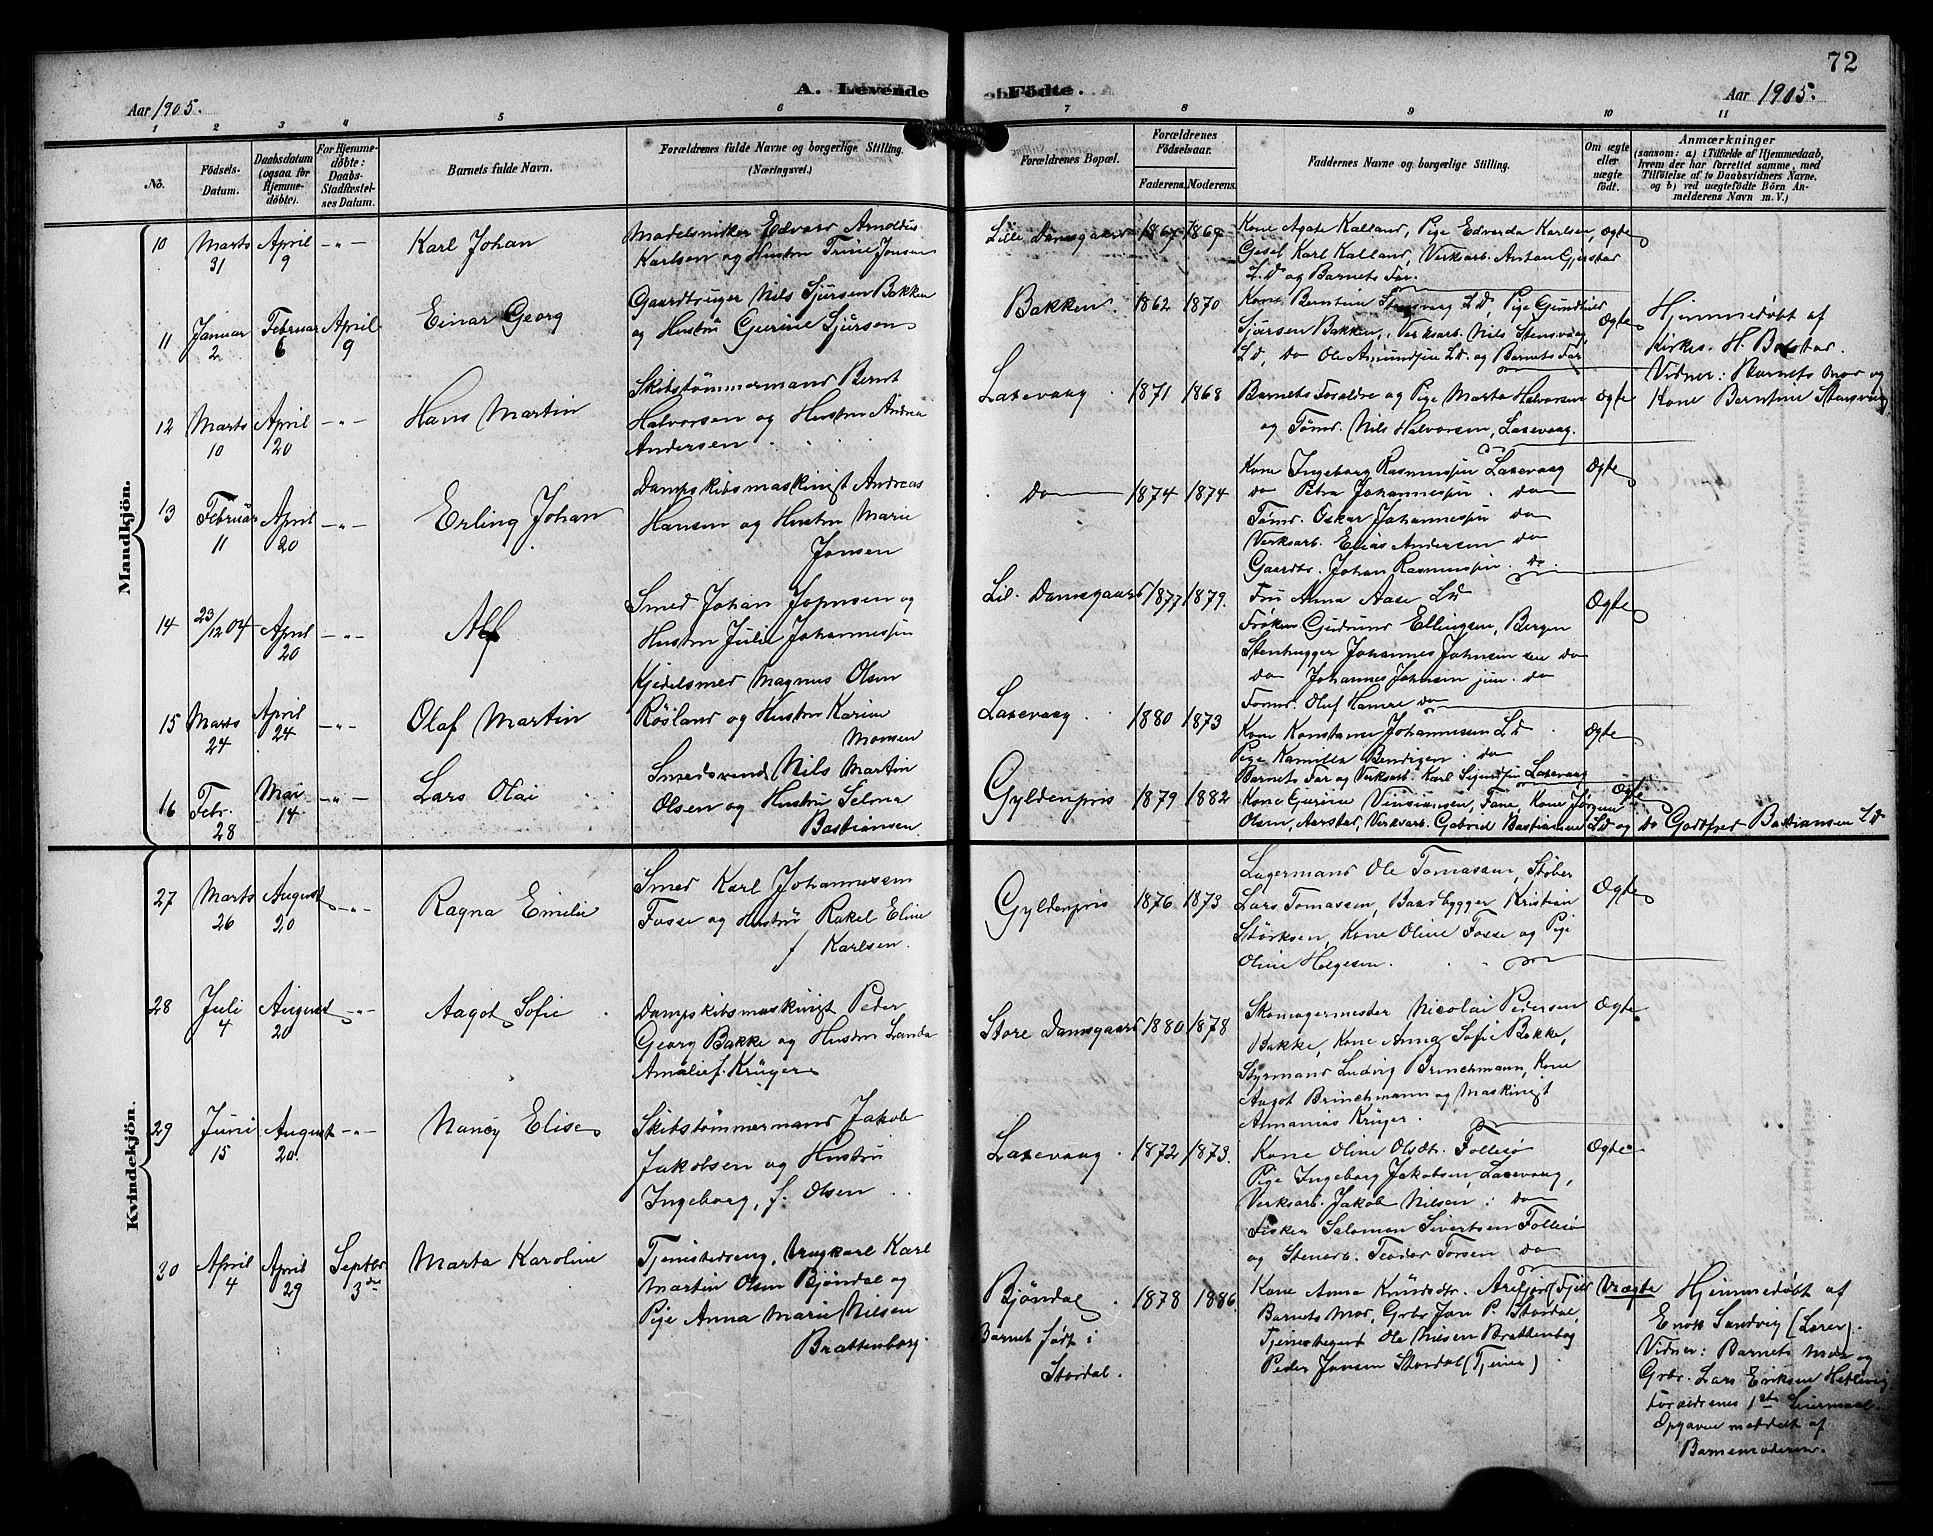 72
A. Levende Födte.
Aar 1905.
Aar 1905.
1 2 3 4 5 6 7 8 9 10 11
No.
Födsels-
Datum.
Daabsdatum
(ogsaa for
Hjemme-
döbte).
For Hjemme-
döbte:
Daabs-
Stadfæstel-
ses Datum.
Barnets fulde Navn.
Forældrenes fulde Navne og borgerlige Stilling.
(Næringsvei.)
Forældrenes Bopæl.
Forældrenes
Födselsaar.
Faderens. Moderens.
Faddernes Navne og borgerlige Stilling.
Om ægte
eller
uægte
födt.
Anmærkninger
(saasom: a) i Tilfælde af Hjemmedaab,
hvem der har forrettet samme, med
Tilföielse af to Daabsvidners Navne,
og b) ved uægtefödte Börn An-
melderens Navn m. V.)
Mandkjön.
10 Marts 31 April 9 -"- Karl Johan
Modelsnikker Edvard Arnoldus
Karlsen og Hustru Trine Jonsen
Lille Damsgaard 1867 1869
Kone Agate Kalland, Pige Edvarda Karlsen,
Gesel Karl Kalland, Verksarb. Anton Gjerstad
Ld og Barnets Far.
Ægte
11 Januar 2 Februar 6 April 9 Einar Georg
Gaardbruger Nils Sjursen Bakken
og Hustru Gurine Sjursen
Bakken 1862 1870
Kone Berntine Stensvaag Ld, Pige Gundhild
Sjursen Bakken, Verksarb. Nils Stensvaag,
Ld, do Ole Amundsen Ld og Barnets Far
Ægte
Hjemmedöbt af
Kirkes. H. Bolstad.
Vidner: Barnets Mor og
Kone Berntine Stensvaag
12 Marts 10 April 20 -"- Hans Martin
Skibstömmermand Bernt
Halvorsen og Hustru Andrea
Andersen
Laxevaag 1871 1868
Barnets Foraldre og Pige Marta Halvorsen
og Tömd. Nils Halvorsen, Laxevaag.
Ægte
13 Februar 11 April 20 -"- Erling Johan
Dampskibsmaskinist Andreas
Hansen og Hustru Marie
Jonsen
do 1874 1874
Kone Ingeborg Rasmussen Laxevaag
do Petra Johannessen do
Tömd. Oskar Johannessen do
Verksarb. Elias Andersen do
Gaardbr. Johan Rasmussen do.
Ægte
14 23/12 04 April 20 -"- Alf
Smed Johan Johnsen og
Hustru Julie Johannessen
Lil. Damsgaard 1877 1879.
Fru Anna Aase Ld
Fröken Gudrund Ellingsen, Bergen
Stenhugger Johannes Johnsen sen do
do Johannes Johnsen jun. do
Tömd. Oluf Hamre do
Ægte
15 Marts 24 April 24 -"- Olaf Martin
Kjedelsmed Magnus Olsen
Rösland og Hustru Karine
Monsen
Laxevaag 1880 1873
Kone Konstanse Johannesen Ld
Pige Kamilla Bendigsen do
Barnets Far og Verksarb. Karl Laxevaag
Ægte
16 Febr. 28 Mai 14 -"- Lars Olai
Smedsvend Nils Martin
Olsen og Hustru Selma
Bastiansen
Gyldenpris 1879 1882
Kone Gurine Fane, Kone Jörgine
Olsen, Aarstad, Verksarb. Gabriel Bastiansen Ld og do Godtfred Bastiansen Ld
Ægte
Kvindekjön.
27 Marts 26 August 20 -"- Ragna Emilie
Smed Karl Johannessen
Fosse og Hustru Rakel Eline
f Karlsen.
Gyldenpris 1876 1873
Lagermand Ole Tomassen, Stöber
Lars Tomassen, Baadbygger Kristian
Störksen, Kone Oline Fosse og Pige
Oline Helgesen.
Ægte
28 Juli 4 August 20 -"- Aagot Sofie
Dampskibsmaskinist Peder
Georg Bakke og Hustru Landa
Amalie f. Krüger
Store Damsgaard 1880 1878
Skomagermester Nicolai Pedersen
Bakke, Kone Anna Sofie Bakke,
Styrmand Ludvig Brinchmann, Kone
Aagot Brinchmann og Maskinist
Ananias Krüger.
Ægte
29 Juni 15 August 20. -"- Nancy Elise
Skibstömmermand Jakob
Jakobsen og Hustru
Ingeborg, f. Olsen
Laxevaag 1872 1873.
Kone Oline Olsdtr. Follesö
Pige Ingeborg Jakobsen, Laxevaag,
Verksarb. Jakob Nilsen: do
Fisker Salomon Sivertsen Follesö
og Stenarb. Teodor Torsen do
Ægte
30 April 4 April 29 Septbr 3die Marta Karoline
Tjenestedreng, Ungkarl Karl
Martin Olsen Bjöndal og
Pige Anna Marie Nilsen
Brattenborg.
Bjöndal 1878 1886.
Barnet födt i
Stordal.
Kone Anna Knudsdtr. Arefjord (Fjeld
Barnets Mor, Grbr. Jon P. Stordal,
Tjenestegut Ole Nilsen Brattenborg
Peder Jonsen Stordal (Tjener)
Uægte
Hjemmedöbt af
Enok Sandvig (Lærer).
Vidner: Barnets Mor og
Grbr. Lars Eriksen Hetlevig.
Foraldrenes 1ste Leiermaal.
Opgaven meddelt af
Barnemoderen.